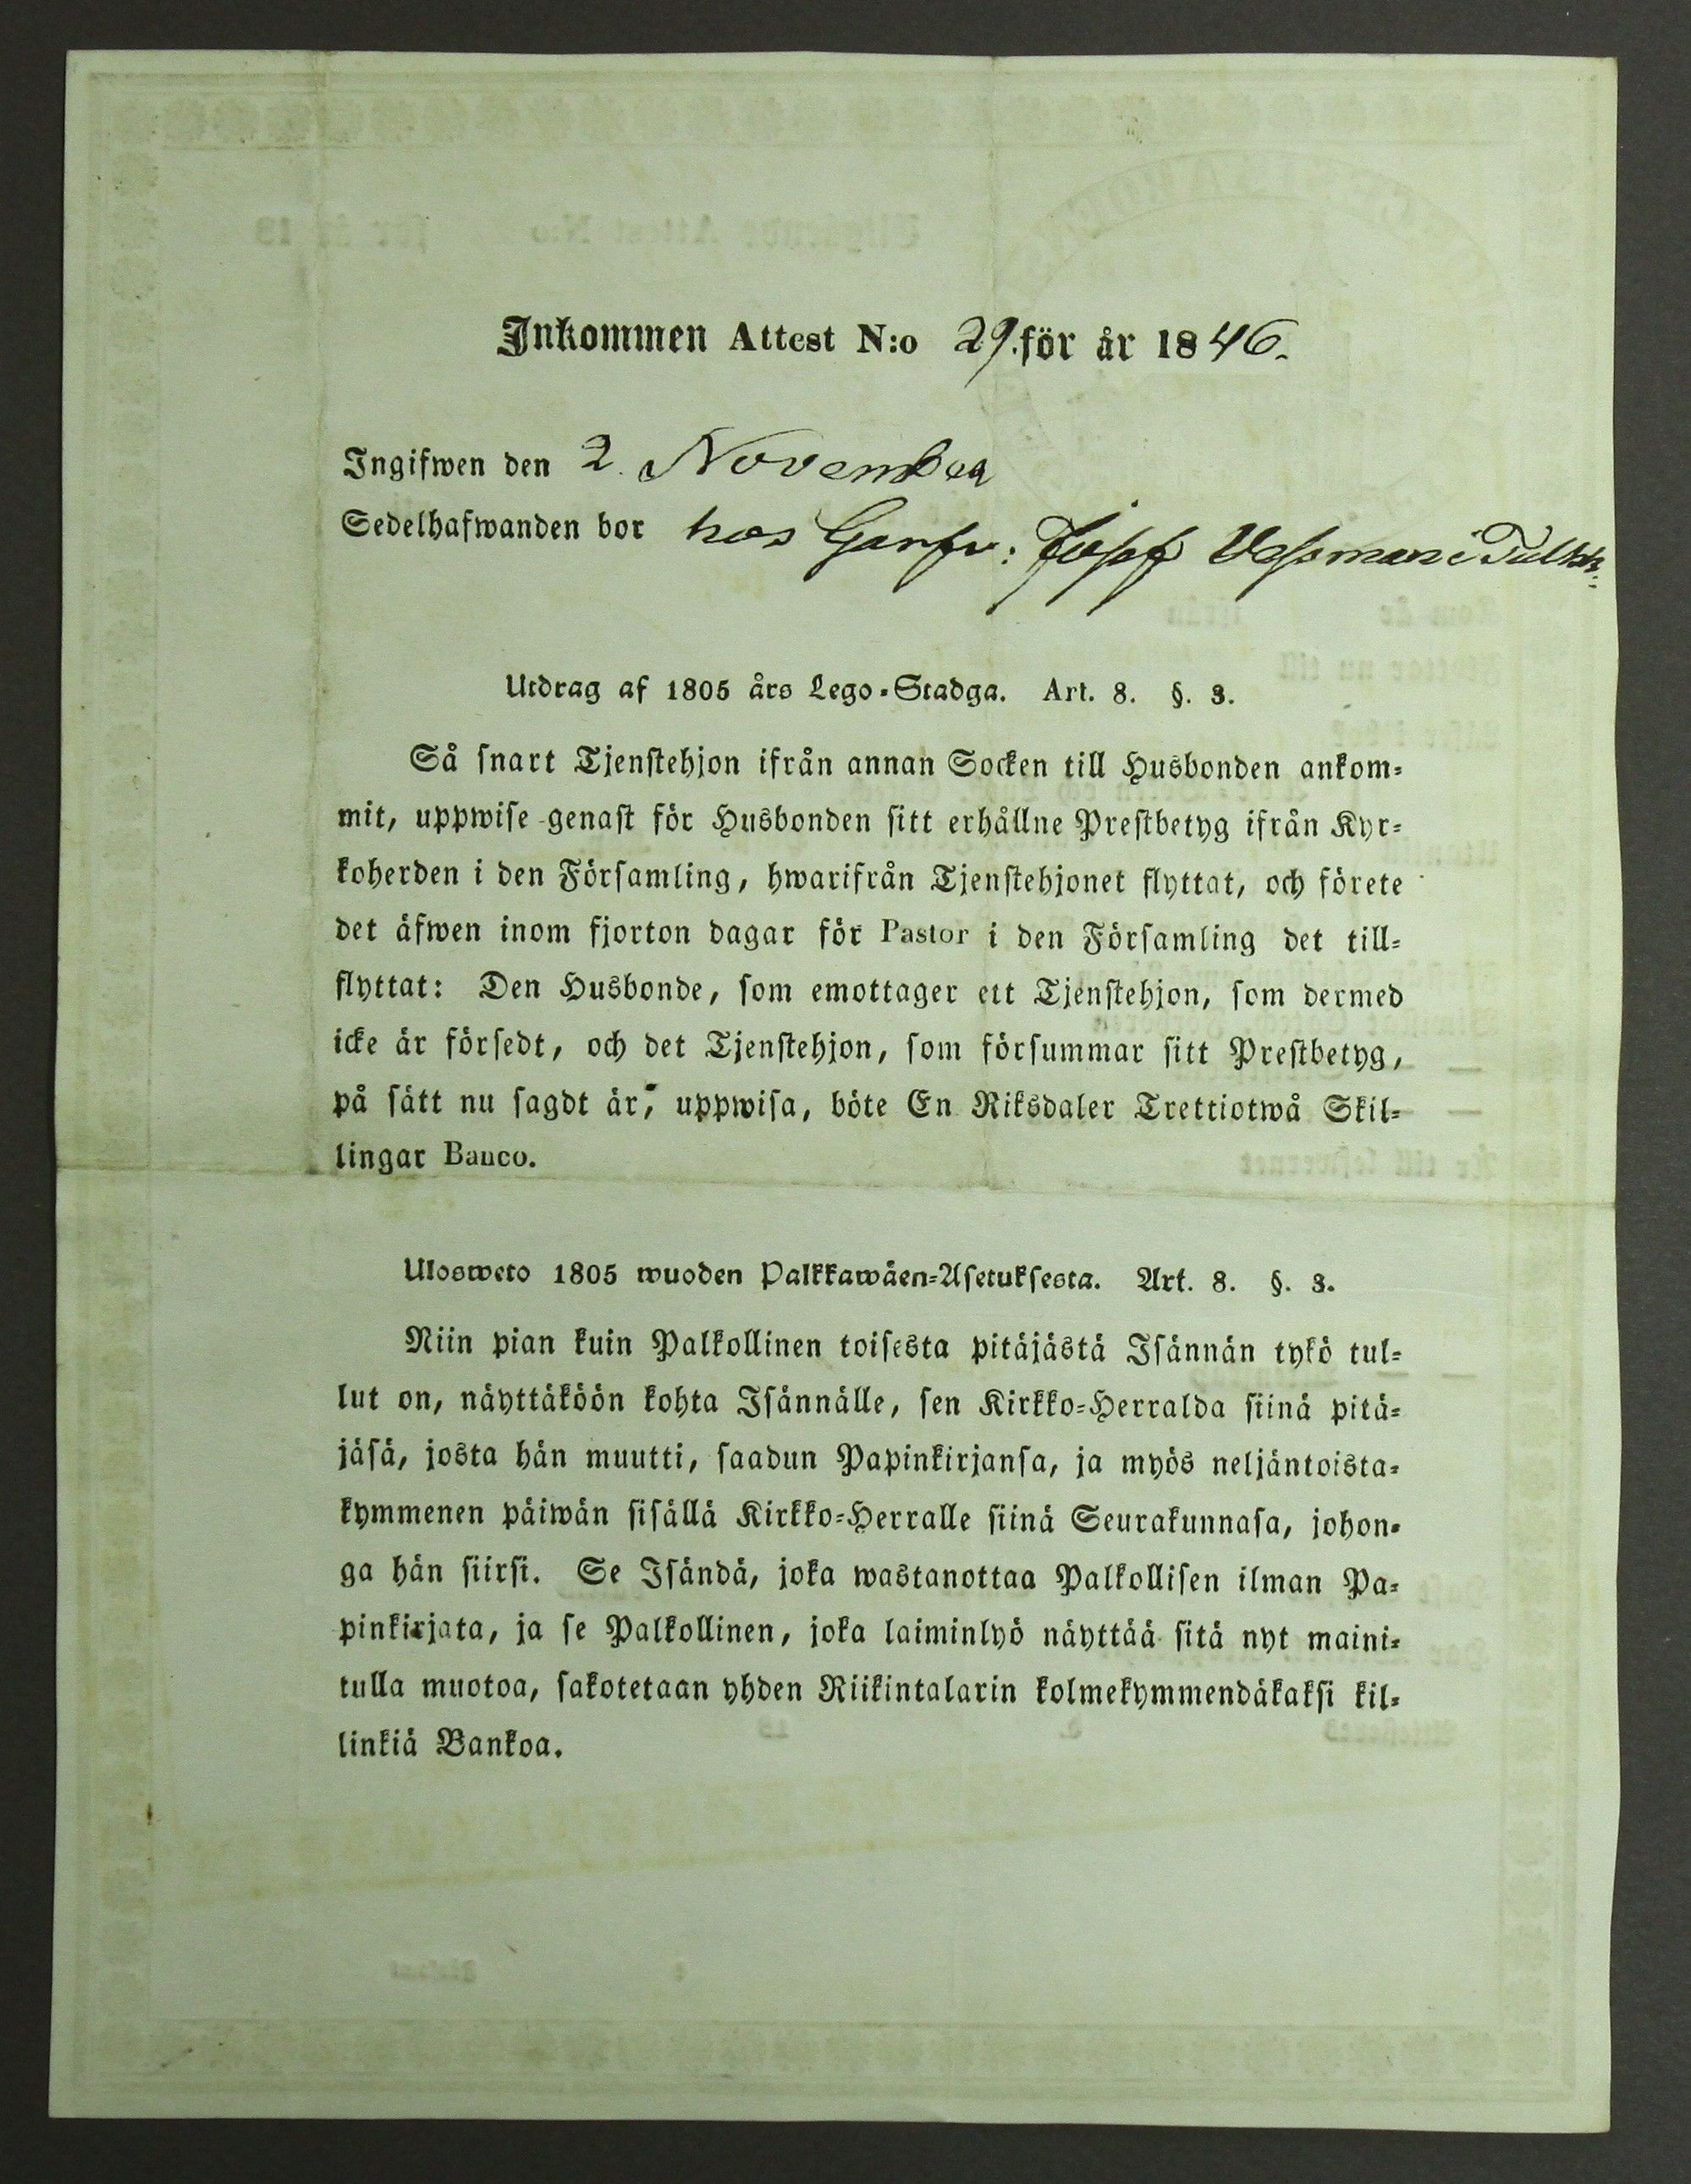 Inkommen Attest N:o 29. för år 1846.
Ingifwen den 2. November
Sedelhafwanden bor hos Garfv: Josef
Utdrag af 1805 års Lego-Stadga. Art. 8. §. 3.
Så snart Tjenstehjon ifrån annan Socken till Husbonden ankom-
mit, uppwise genast för Husbonden sitt erhållne Prestbetyg ifrån Kyr-
koherden i den Församling, hwarifrån Tjenstehjonet flyttat, och förete
det äfwen inom fjorton dagar för Pastor i den Församling det till-
flyttat: Den Husbonde, som emottager ett Tjenstehjon, som dermed
icke är försedt, och det Tjenstehjon, som försummar sitt Prestbetyg,
på sätt nu sagdt är, uppwisa, böte En Riksdaler Trettiotwå Skil-
lingar Banco.
Ulosweto 1805 wuoden Palkkawäen-Asetuksesta. Art. 8. §. 3.
Niin pian kuin Palkollinen toisesta pitäjästä Isännän tykö tul-
lut on, näyttäköön kohta Isännälle, sen Kirkko-Herralda siinä pitä-
jäsä, josta hän muutti, saadun Papinkirjansa, ja myös neljäntoista-
kymmenen päiwän sisällä Kirkko-Herralle siinä Seurakunnasa, johon-
ga hän siirsi. Se Isändä, joka wastanottaa Palkollisen ilman Pa-
pinkirjata, ja se Palkollinen, joka laiminlyö näyttää sitä nyt maini-
tulla muotoa, sakotetaan yhden Riikintalarin kolmekymmendäkaksi kil-
linkiä Bankoa.